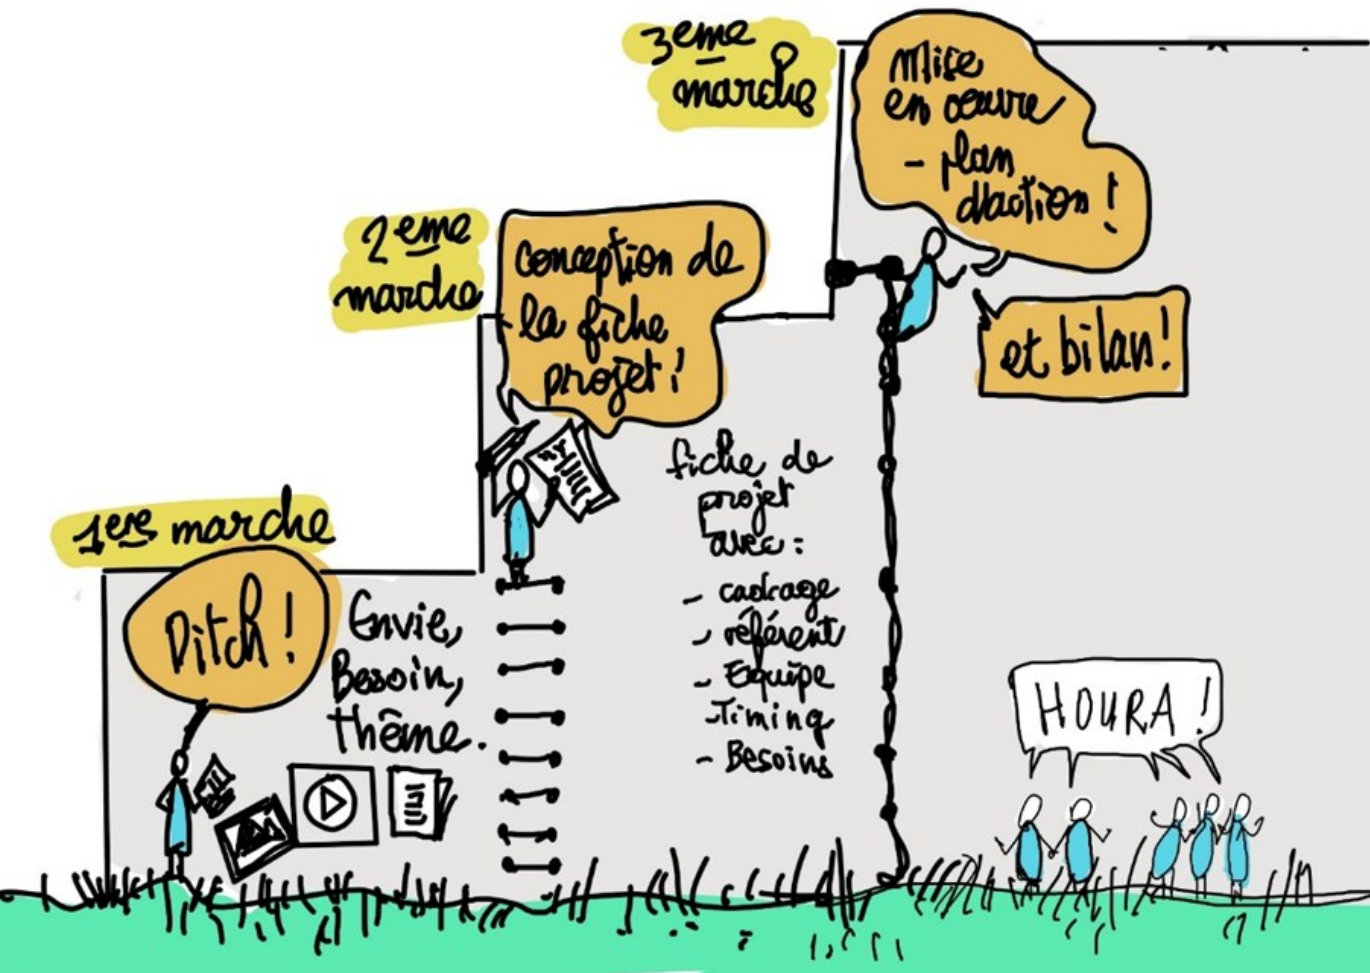 1ere marche
Pitch !
Envie,
Besoin,
thème.
2eme
marche
conception de
la fiche
projet !
fiche de
projet
avec :
- cadrage
- référent
- Equipe
- Timing
- Besoins
3eme
marche
Mise
en oeuvre
- plan
d'action !
et bilan !
HOURA !